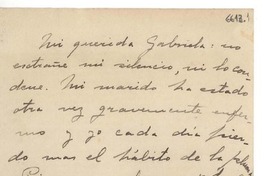 6612.1
Mi querida Gabriela: no
extrañe mi silencio, ni lo con-
dene. Mi marido ha estado
otra vez gravemente enfer-
mo y yo cada día pier-
do mas el hábito de la pluma